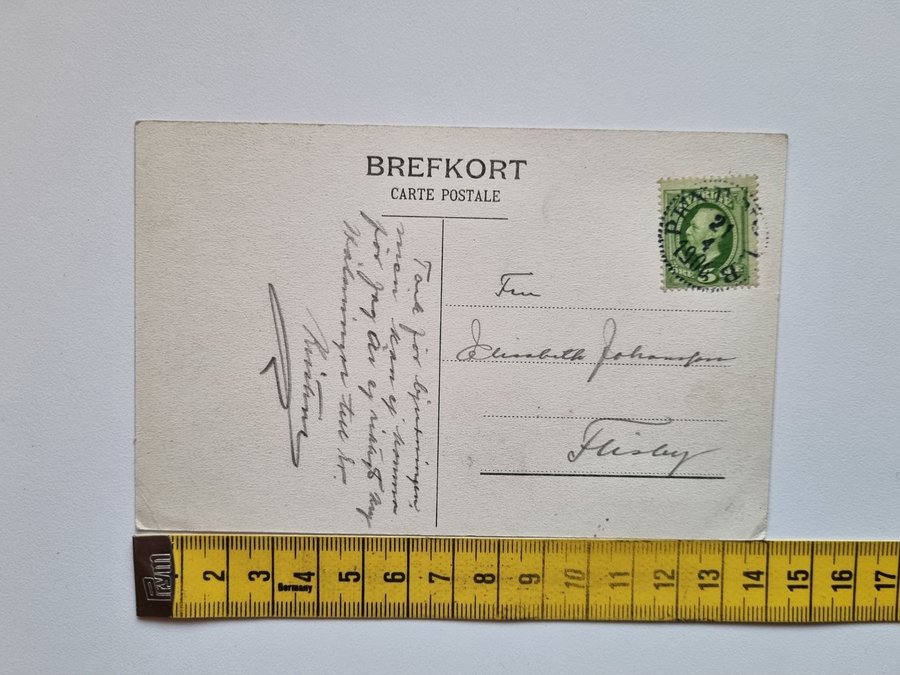 BREFKORT
CARTE POSTALE
Tack för bjudningen,
men kan ej komma
för jag är ej riktigt kry
Hälsningar till Er.
Fru
Elisabeth Johansson
Flisby
PKXP
21
4
1906
1 B
Germany
2 3 4 5 6 7 8 9 10 11 12 13 14 15 16 17